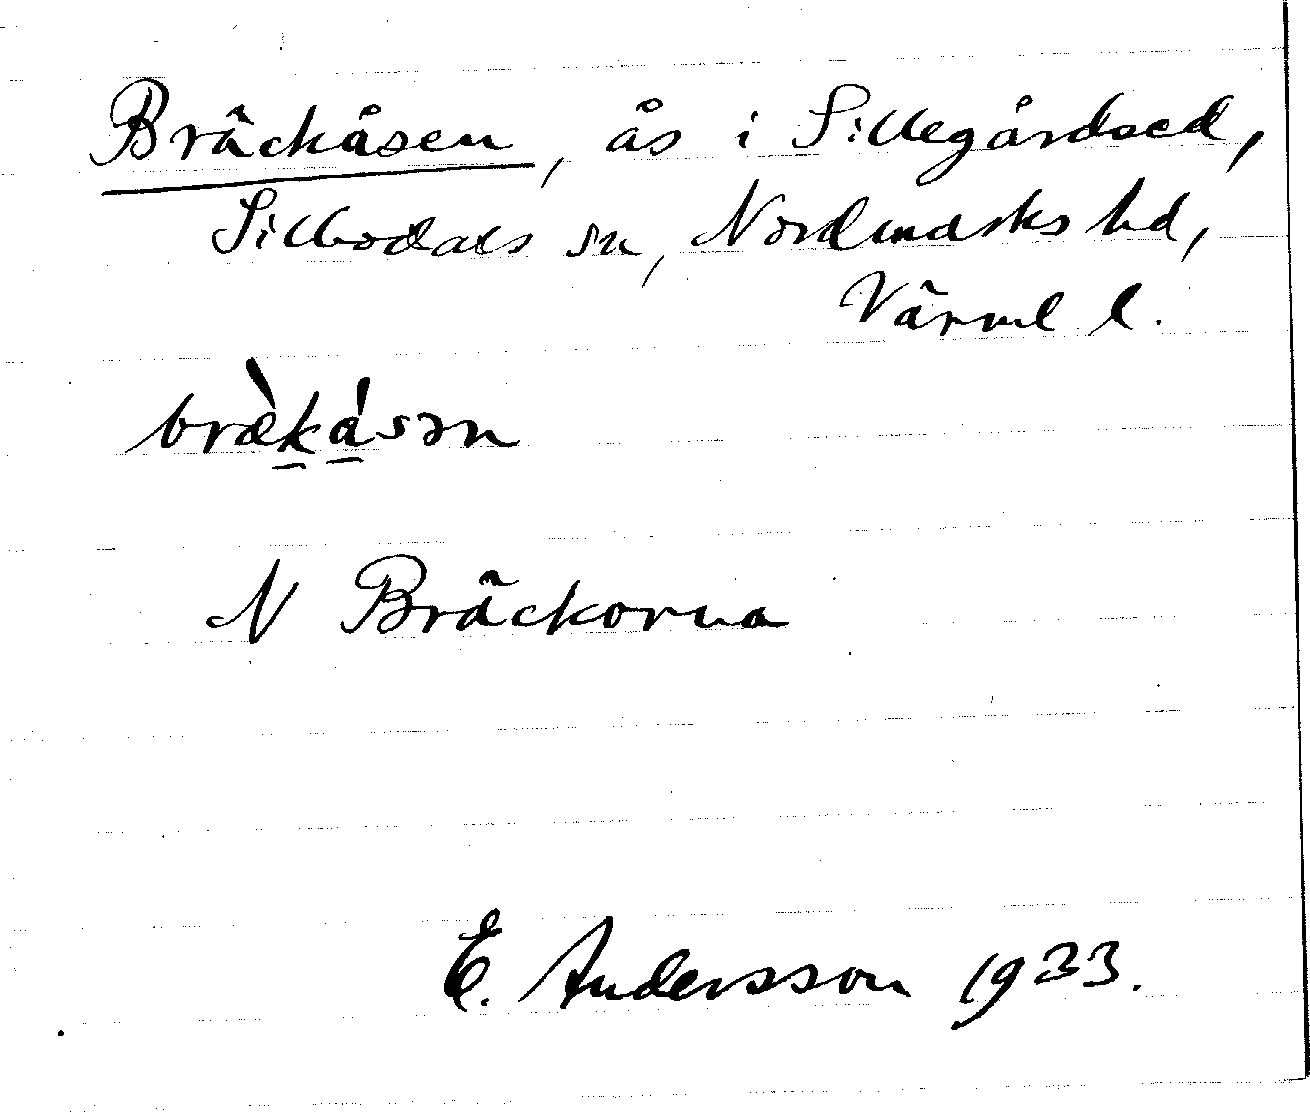 Bräckåsen, ås i Sillegårdsed,
Sillbodals sn, Nordmarks hd,
Värml l.
bræ̀ḵá̱sən
N Bräckorna
E. Andersson 1933.